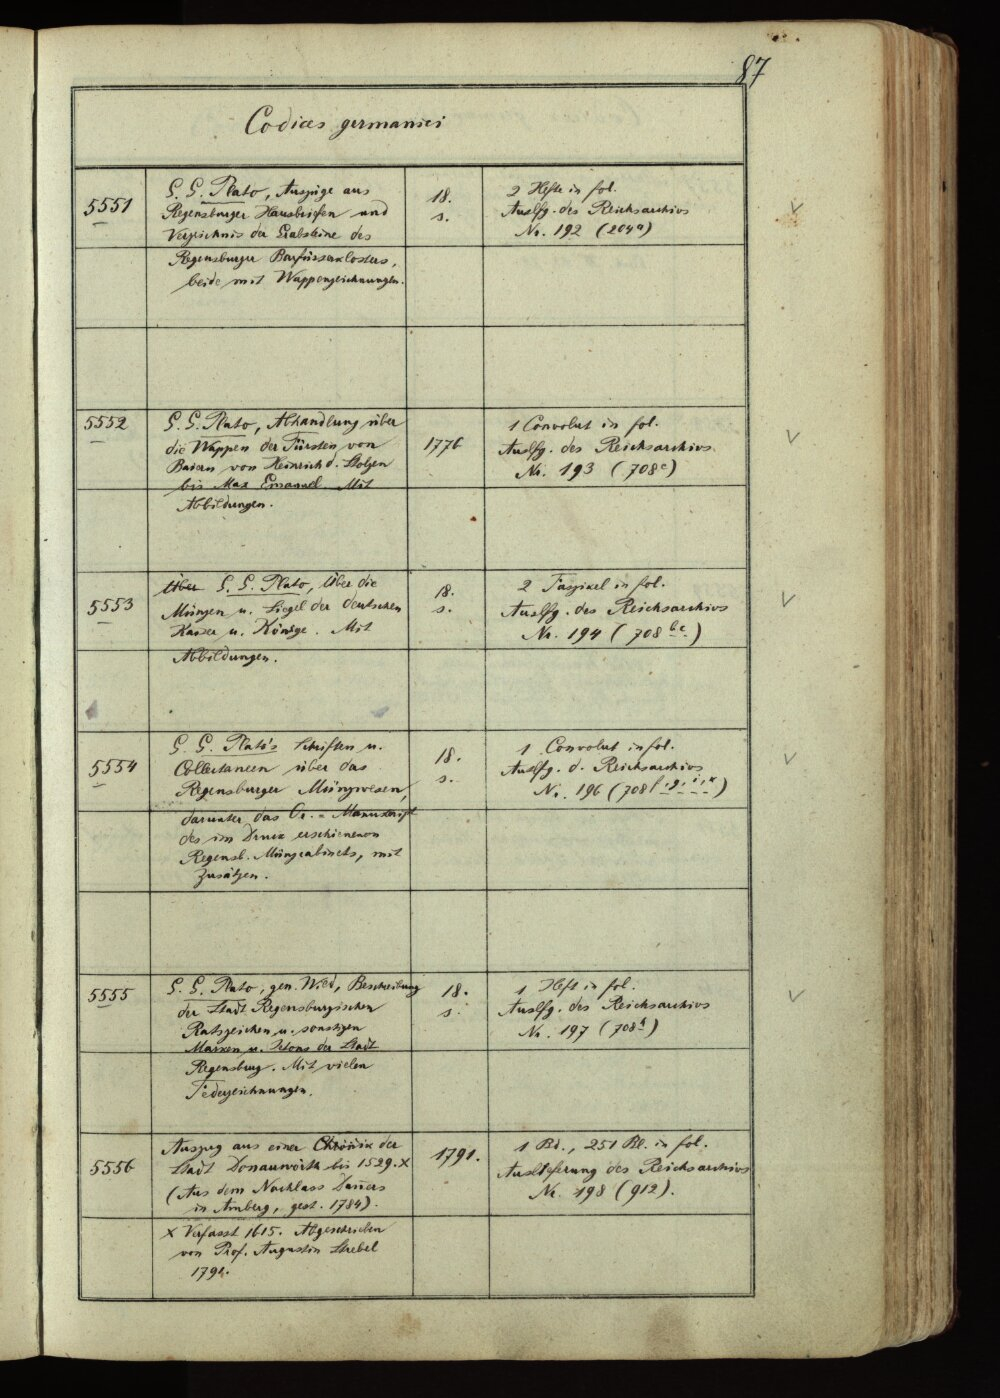 87
Codices germanici
5551
G. G. Plato, Auszüge aus
Regensburger Hausbriefen und
Verzeichnis der Grabsteine des
Regensburger Barfüsserklosters,
beide mit Wappenzeichnungen.
18.
s.
2 Hefte in fol.
Auslfg. des Reichsarchivs
Nr. 192 (204a)
5552
G. G. Plato, Abhandlung über
die Wappen der Fürsten von
Baiern von Heinrich d. Stolzen
bis Max Emanuel. Mit
Abbildungen.
1776
1 Convolut in fol.
Auslfg. des Reichsarchivs
Nr. 193 (708c)
5553
Über G. G. Plato, Über die
Münzen u. Siegel der deutschen
Kaiser u. Könige. Mit
Abbildungen.
18.
s.
2 Faszikel in fol.
Auslfg. des Reichsarchivs
Nr. 194 (708 b.c.)
5554
G. G. Plato's Schriften u.
Collectaneen über das
Regensburger Münzwesen,
darunter das Or.-Manuskript
des im Druck erschienenen
Regensb. Münzcabinets, mit
Zusätzen.
18.
s.
1 Convolut in fol.
Auslfg. d. Reichsarchivs
Nr. 196 (708 f.g.i.k)
5555
G. G. Plato, gen. Wild, Beschreibung
der Stadt Regensburgischen
Ratszeichen u. sonstigen
Marken u. Jetons der Stadt
Regensburg. Mit vielen
Federzeichnungen.
18.
s.
1 Heft in fol.
Auslfg. des Reichsarchivs
Nr. 197 (708h)
5556
Auszug aus einer Chronik der
Stadt Donauwörth bis 1529. x
(Aus dem Nachlass
in Amberg, gest. 1784).
x Verfasst 1615. Abgeschrieben
von Prof. Augustin Strebel
1791.
1791.
1 Bd., 251 Bl. in fol.
Auslieferung des Reichsarchivs
Nr. 198 (912).